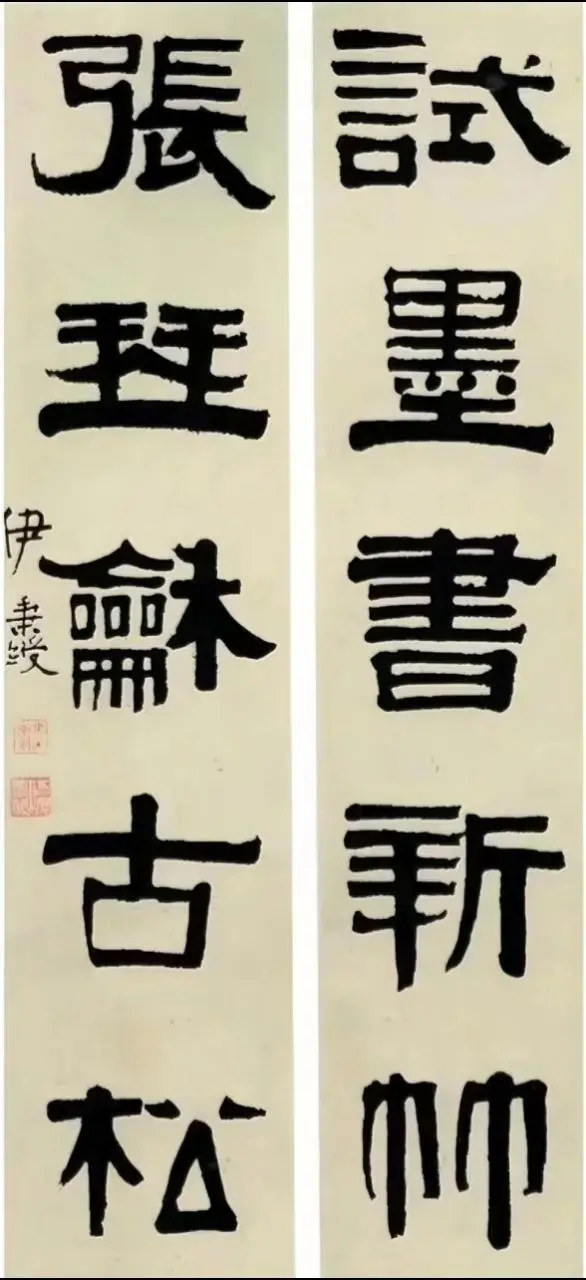 試墨書新竹
張琴龢古松
伊秉綬